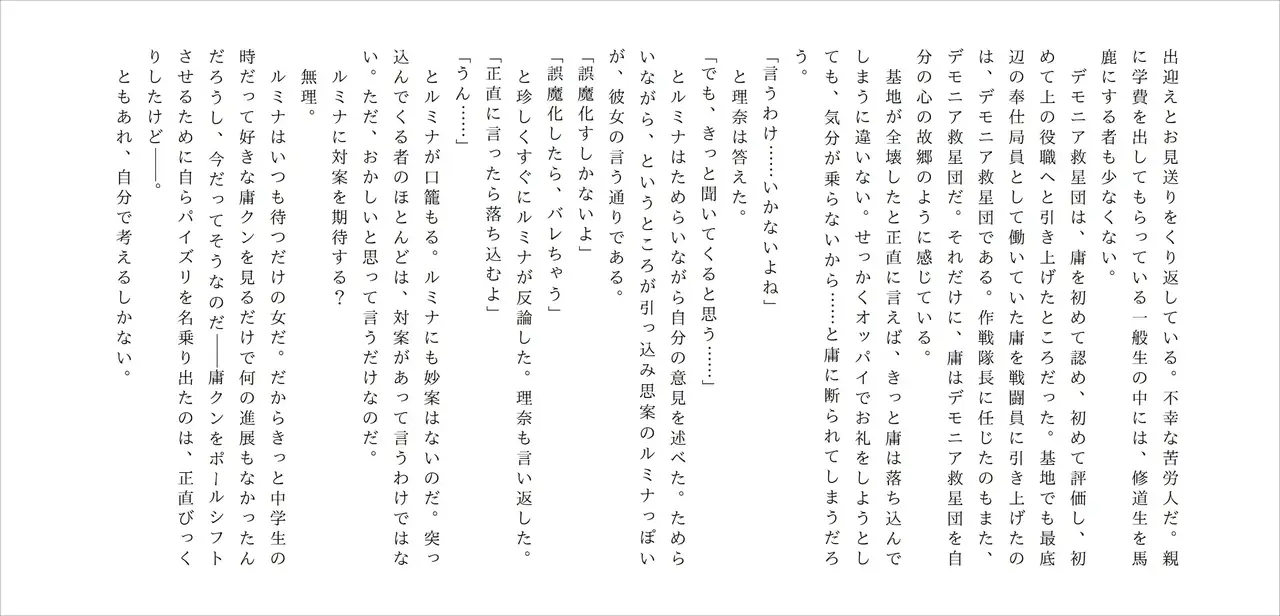 出迎えとお見送りをくり返している。不幸な苦労人だ。親
に学費を出してもらっている一般生の中には、修道生を馬
鹿にする者も少なくない。
デモニア救星団は、庸を初めて認め、初めて評価し、初
めて上の役職へと引き上げたところだった。基地でも最底
辺の奉仕局員として働いていた庸を戦闘員に引き上げたの
は、デモニア救星団である。作戦隊長に任じたのもまた、
デモニア救星団だ。それだけに、庸はデモニア救星団を自
分の心の故郷のように感じている。
基地が全壊したと正直に言えば、きっと庸は落ち込んで
しまうに違いない。せっかくオッパイでお礼をしようとし
ても、気分が乗らないから……と庸に断られてしまうだろ
う。
「言うわけ……いかないよね」
と理奈は答えた。
「でも、きっと聞いてくると思う……」
とルミナはためらいながら自分の意見を述べた。ためら
いながら、というところが引っ込み思案のルミナっぽい
が、彼女の言う通りである。
「誤魔化すしかないよ」
「誤魔化したら、バレちゃう」
と珍しくすぐにルミナが反論した。理奈も言い返した。
「正直に言ったら落ち込むよ」
「うん……」
とルミナが口籠もる。ルミナにも妙案はないのだ。突っ
込んでくる者のほとんどは、対案があって言うわけではな
い。ただ、おかしいと思って言うだけなのだ。
ルミナに対案を期待する？
無理。
ルミナはいつも待つだけの女だ。だからきっと中学生の
時だって好きな庸クンを見るだけで何の進展もなかったん
だろうし、今だってそうなのだ――庸クンをポールシフト
させるために自らパイズリを名乗り出たのは、正直びっく
りしたけど――。
ともあれ、自分で考えるしかない。